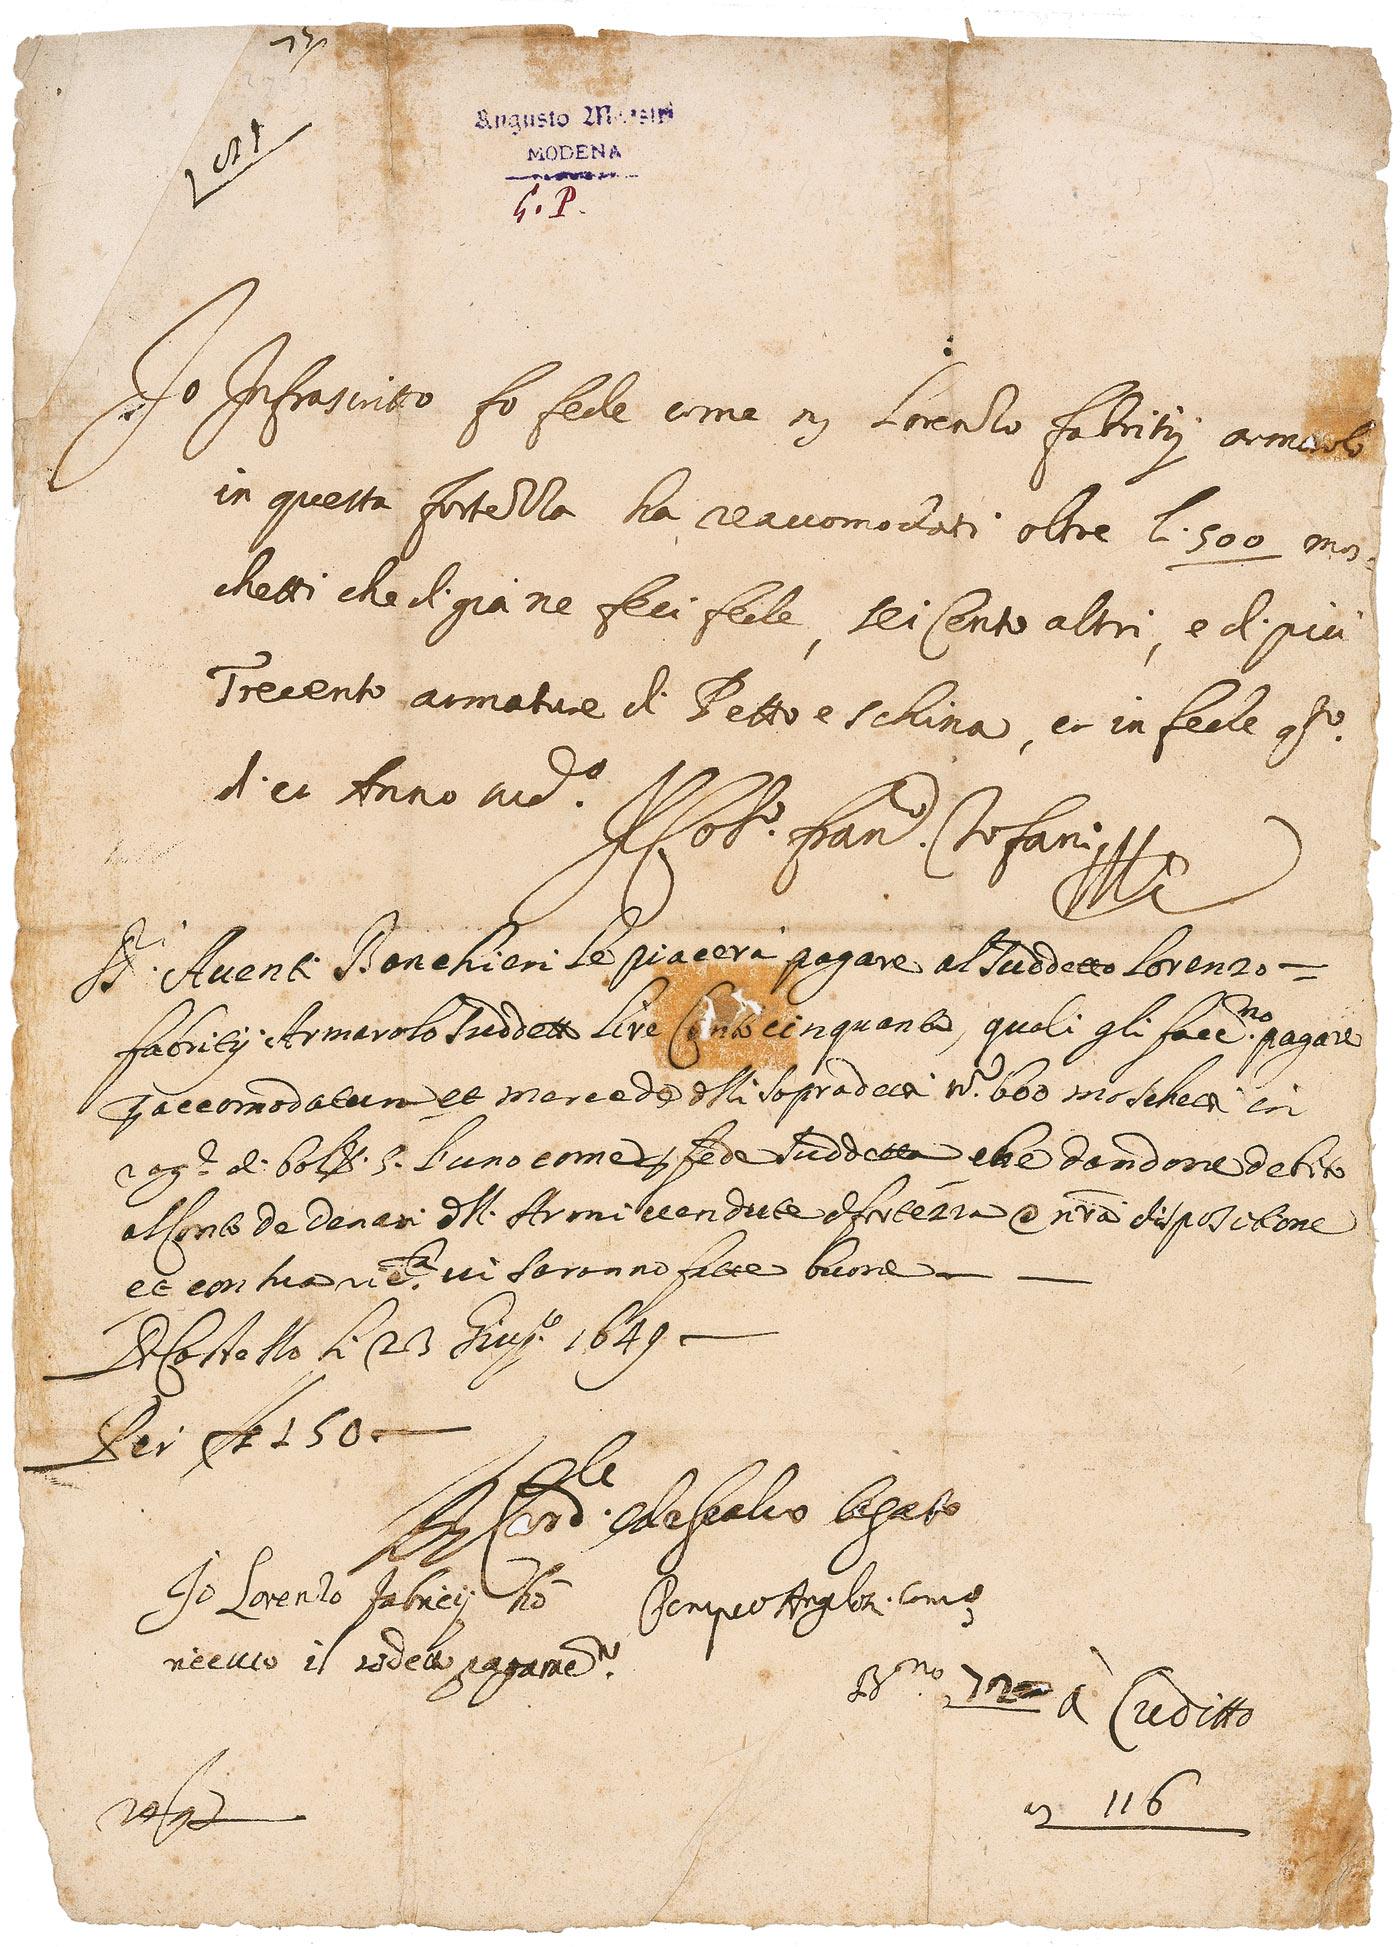 Augusto
MODENA
G. P.
Jo Infrascritto fo fede come mº Lorenzo fabritij armarolo
in questa fortezza ha reaccomodati oltre li 500 mos-
chetti che di già ne feci fede, sei Cento altri, e di più
Trecento armature di Petto e schina, et in fede qsto.
di et Anno sudº.
franº. Stefani
Sri. Auenti Banchieri le piacerà pagare al Suddetto Lorenzo
fabritij Armarolo Suddetto Lire Cento cinquanta, quali gli faccno. pagare
accomodatura et mercede delli sopradetti Nº. 600 moschetti in
ragº. di bolni. 5. l'uno come fede Suddetta che dandone debito
al Conto de denari dell. Armi uendute di fortezza a nrā dispositione
et con sua ricta. ui saranno fatte buone
Di Castello li 23 Giugº. 1649
Per £ 150.
Cardle. legato
Jo Lorenzo fabricij hō
riceuto il sodetto pagamento.
Pompeo Comº
72 à Creditto
116